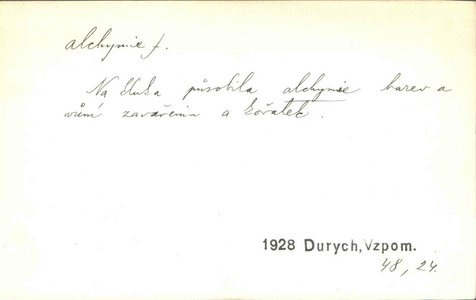 alchymie f.
Na kluka působila alchymie barev a
vůní zavařenin a kořalek.
1928 Durych, Vzpom.
48, 24.